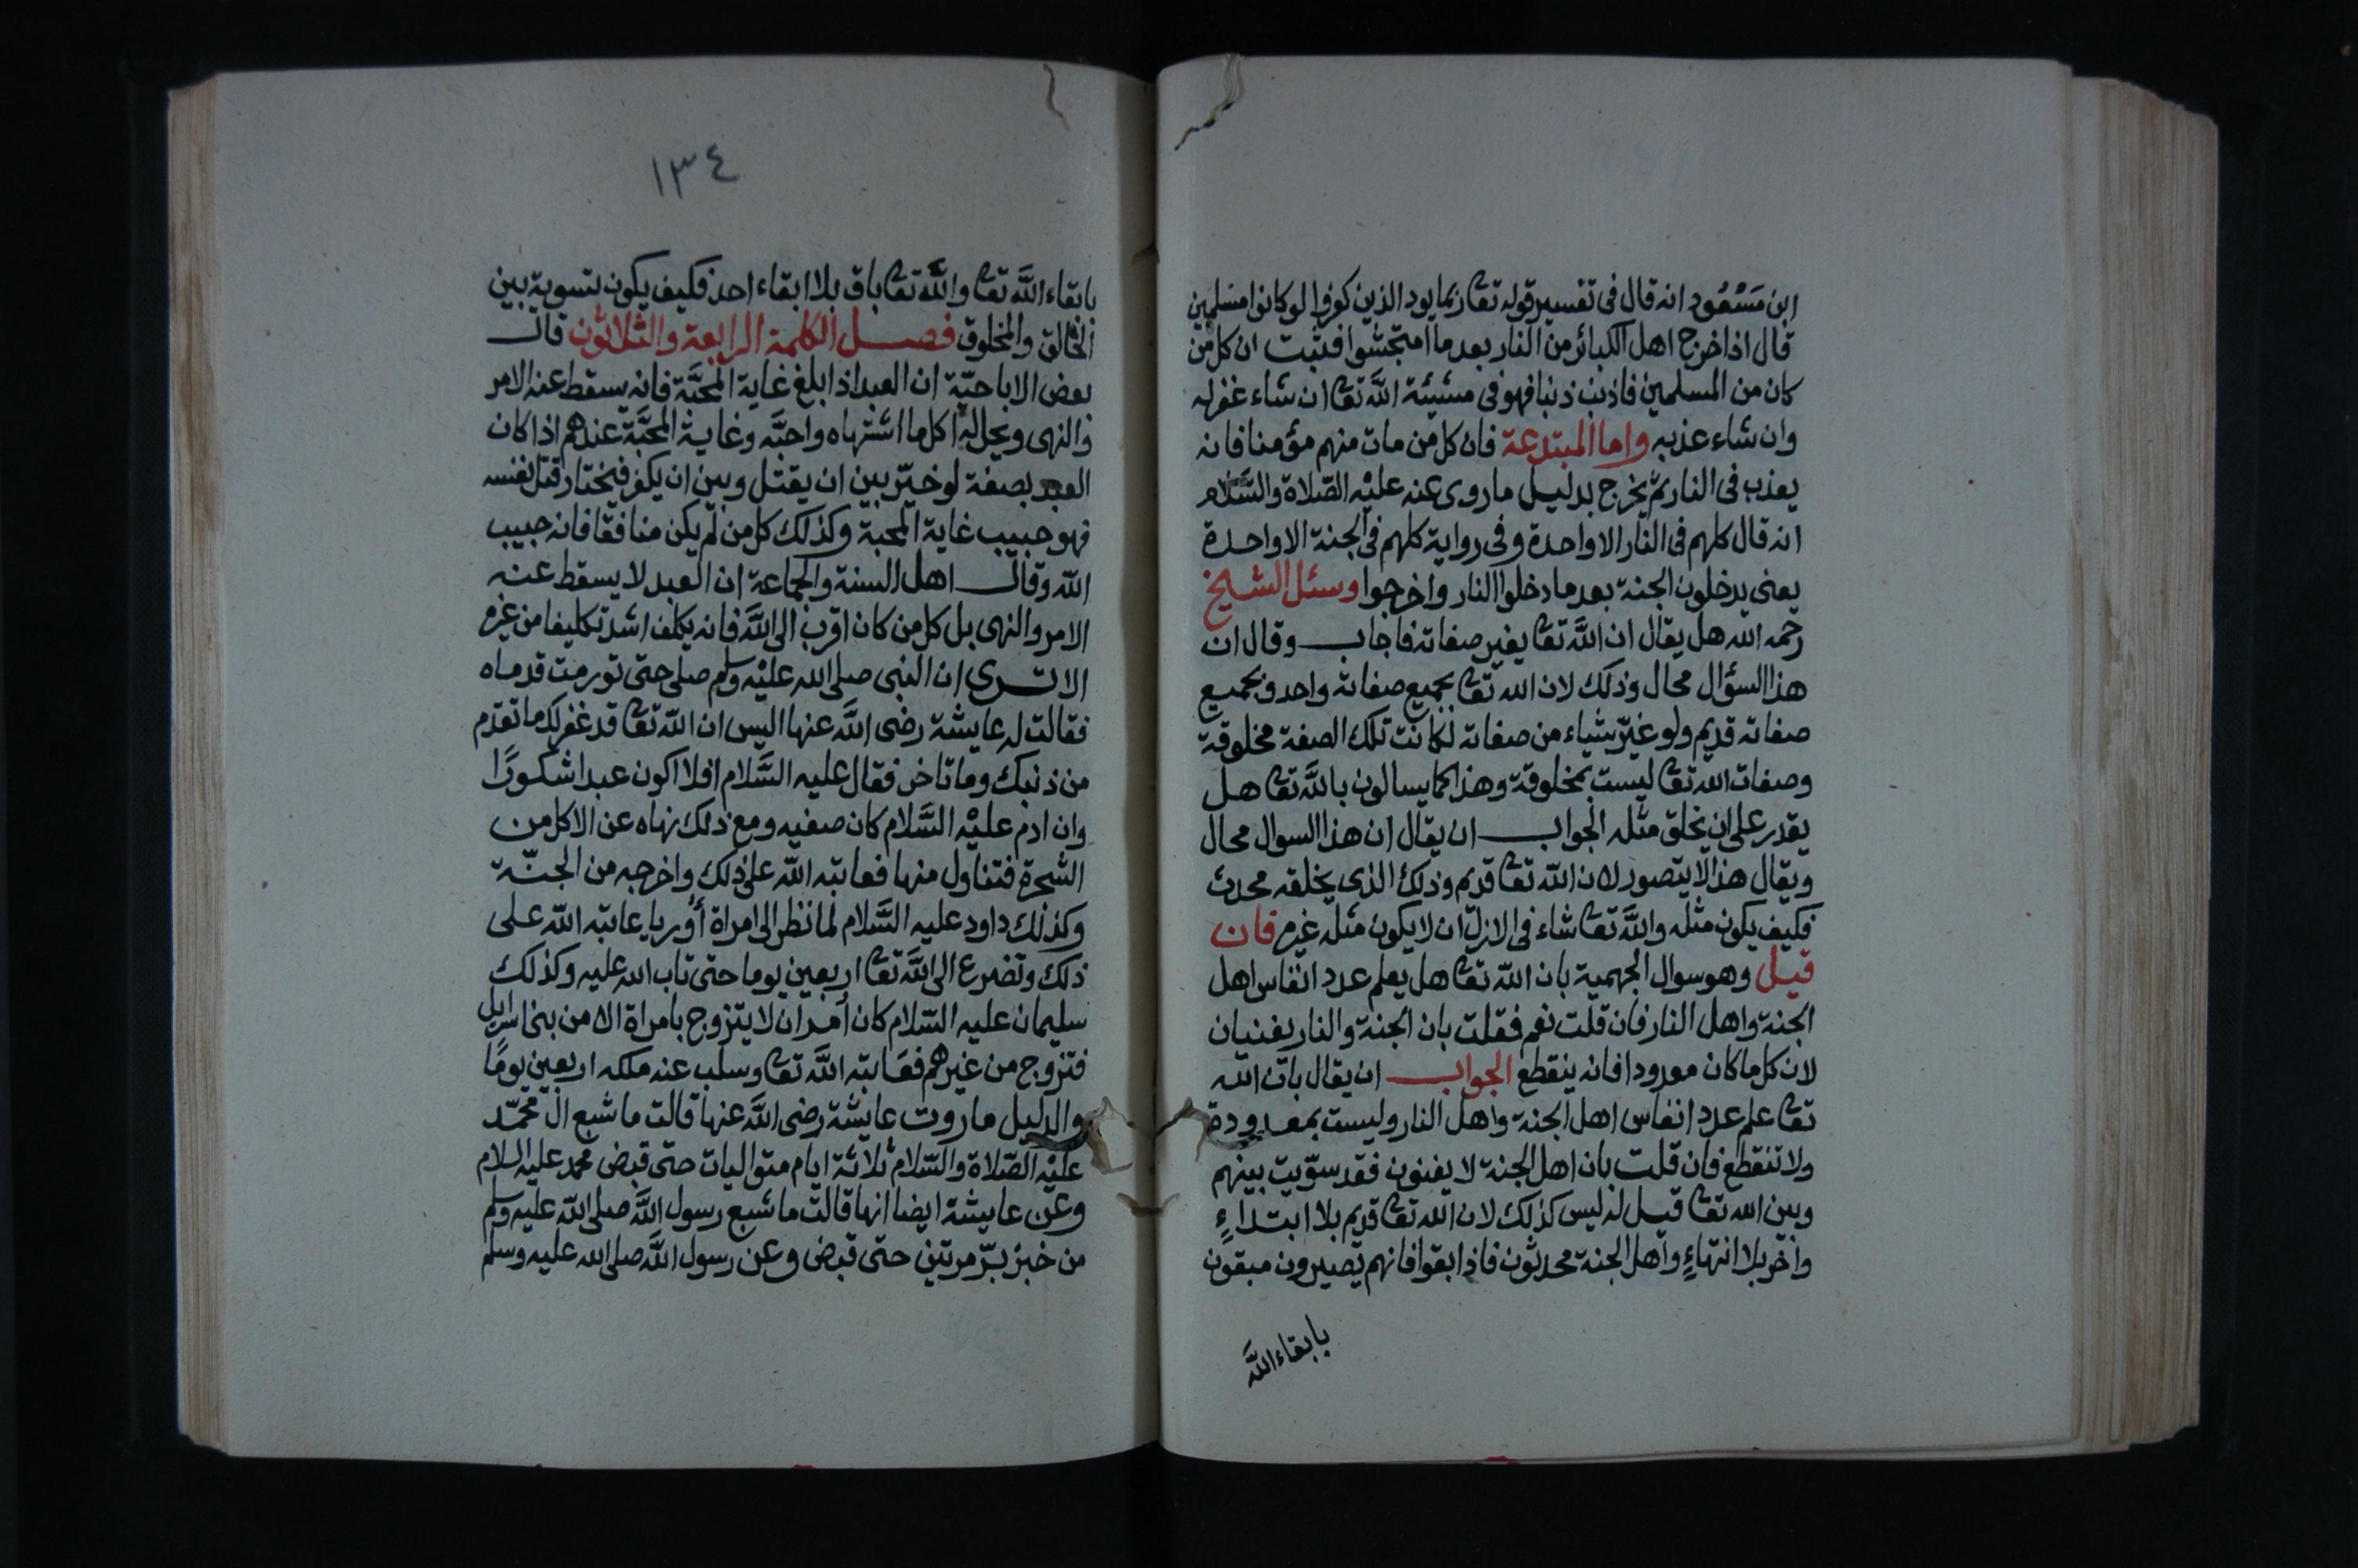 ابن مَسْعُود انه قال فى تفسير قوله تعا ربما يود الذين كفروا لو كانوا مسلمين
قال اذا اخرج اهل الكبائر من النار بعد ما امتحشوا فثبت ان كل من
كان من المسلمين فاذنب ذنبا فهو فى مشيئة الله تعا ان شاء غفر له
وان شاء عذبه واما المبتدعة فان كل من مات منهم مؤمنا فانه
يعذب فى النار ثم يخرج بدليل ما روى عنه عليْه الصّلاة والسَّلام
انه قال كلهم فى النار الا واحدة وفى رواية كلهم فى الجنة الا واحدة
يعنى يدخلون الجنة بعد ما دخلوا النار واخرجوا وسئل الشيخ
رحمه الله هل يقال ان الله تعا يغير صفاته فاجاب وقال ان
هذا السؤال محال وذلك لان الله تعا بجميع صفاته واحد وبجميع
صفاته قديم ولو غيّر شياء من صفاته لكانت تلك الصفة مخلوقة
وصفات الله تعا ليست بمخلوقة وهذا كما يسالون بالله تعا هل
يقدر على ان يخلق مثله الجواب ان يقال ان هذا السوال محال
ويقال هذا لا يتصور لان الله تعا قديم وذلك الذى يخلقه محدث
فكيف يكون مثله والله تعا شاء فى الازل ان لا يكون مثله غيره فان
قيل وهو سوال الجهمية بان الله تعا هل يعلم عدد انفاس اهل
الجنة واهل النار فان قلت نعم فقلت بان الجنة والنار يفنيان
لان كل ما كان معدودا فانه ينقطع الجواب ان يقال بان الله
تعا علم عدد انفاس اهل الجنة واهل النار وليست بمعدودة
ولا تنقطع فان قلت بان اهل الجنة لا يفنون فقد سوّيت بينهم
وبين الله تعا قيل له ليس كذلك لان الله تعا قديم بلا ابتداءٍ
واخر بلا انتهاءٍ واهل الجنة محدثون فاذا ابقوا فانهم يصيرون مبقون
بابقاء الله
١٣٤
بابقاء الله تعا والله تعا باق بلا ابقاء احد فكيف يكون تسوية بين
الخالق والمخلوق فصل الكلمة الرابعة والثلاثون قال
بعض الاباحيّة ان العبد اذا بلغ غاية المحبَّة فانه يسقط عنه الامر
والنهى ويحل له اكل ما اشتهاه واحبَّه وغاية المحبَّة عندهم اذا كان
العبد بصفة لو خيّر بين ان يقتل وبين ان يكفر فيختار قتل نفسه
فهو حبيب غاية المحبة وكذلك كل من لم يكن منافقا فانه حبيب
الله وقال اهل السنة والجماعة ان العبد لا يسقط عنه
الامر والنهى بل كل من كان اقرب الى الله فانه يكلف اشد تكليفا من غيره
الا ترى ان النبى صلى الله عليْه وسلم صلى حتى تورمت قدماه
فقالت له عايشة رضى الله عنها اليس ان الله تعا قد غفر لك ما تقدم
من ذنبك وما تاخر فقال عليه السَّلام افلا اكون عبدا شكورًا
وان ادم عليْه السَّلام كان صفيه ومع ذلك نهاه عن الاكل من
الشجرة فتناول منها فعاتبه الله على ذلك واخرجه من الجنّة
وكذلك داود عليه السَّلام لما نظر الى امراة أوريا عاتبه الله على
ذلك وتضرع الى الله تعا اربعين يوما حتى تاب الله عليه وكذلك
سليمان عليه السّلام كان أمر ان لا يتزوج بامراة الا من بنى اسرايل
فتزوج من غيرهم فعَاتبه الله تعا وسلب عنه ملكه اربعين يومًا
والدليل ما روت عايشة رضى الله عنها قالت ما شبع ال محمّد
عليْه الصّلاة والسّلام ثلاثة ايام متواليات حتى قبض محمد عليه السلام
وعن عايشة ايضا انها قالت ما شبع رسول الله صلى الله عليه وسلم
من خبز برّ مرتين حتى قبض وعن رسول الله صلى الله عليه وسلم